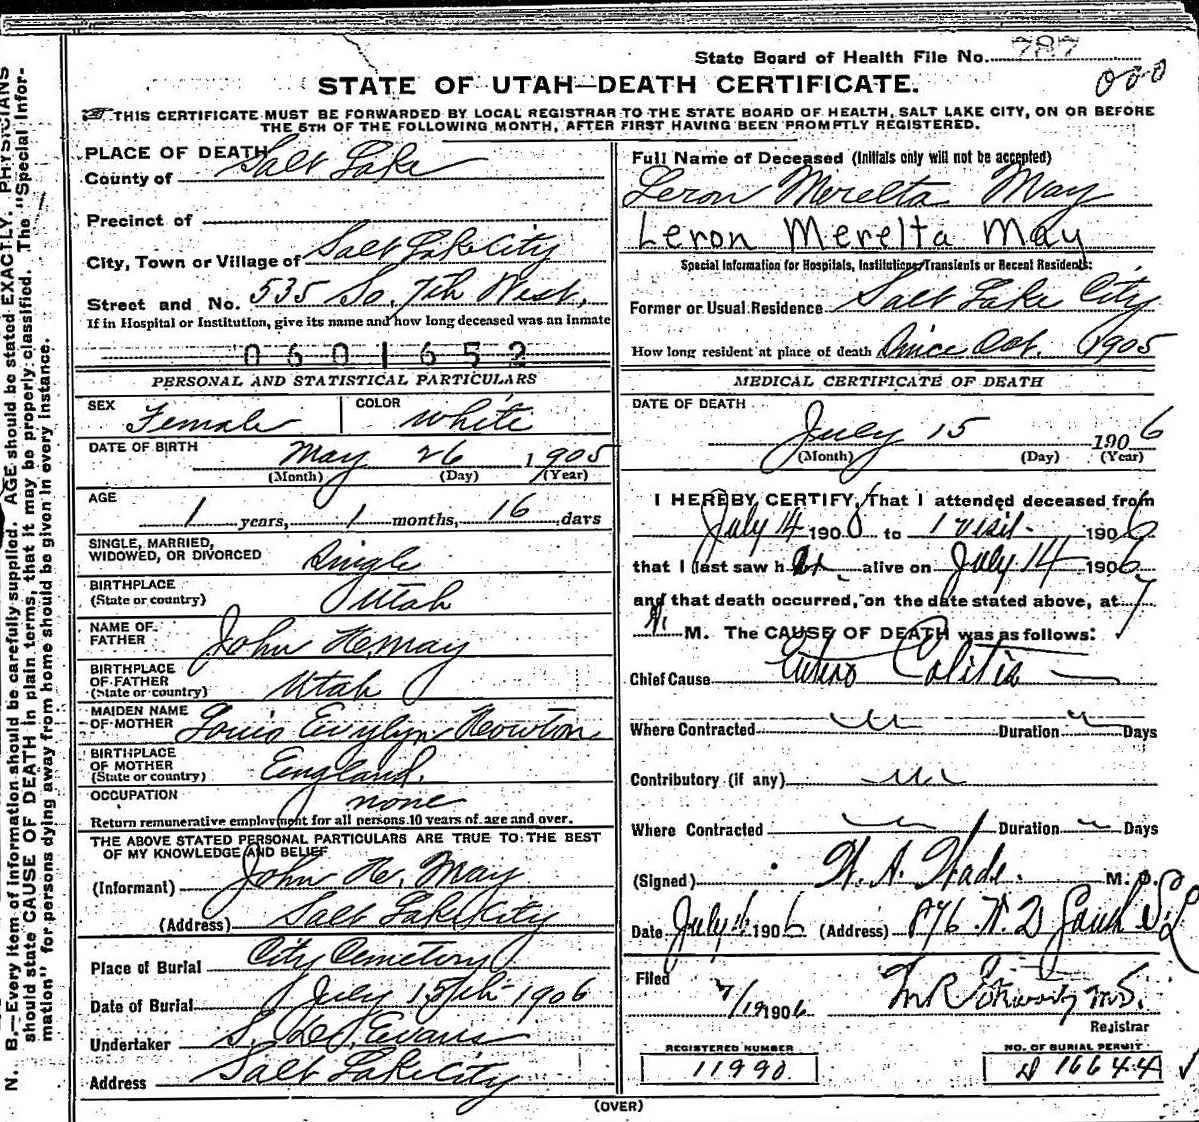 State Board of Health File No. 787
000
STATE OF UTAH—DEATH CERTIFICATE.
THIS CERTIFICATE MUST BE FORWARDED BY LOCAL REGISTRAR TO THE STATE BOARD OF HEALTH, SALT LAKE CITY, ON OR BEFORE
THE 5TH OF THE FOLLOWING MONTH, AFTER FIRST HAVING BEEN PROMPTLY REGISTERED.
N. B.—Every item of information should be carefully supplied. AGE should be stated EXACTLY. PHYSICIANS
should state CAUSE OF DEATH in plain terms, that it may be properly classified. The "Special Infor-
mation" for persons dying away from home should be given in every instance.
PLACE OF DEATH
County of Salt Lake
Precinct of
City, Town or Village of Salt Lake City
Street and No. 535 So. 7th West.
If in Hospital or Institution, give its name and how long deceased was an inmate
0601652
PERSONAL AND STATISTICAL PARTICULARS
SEX Female
COLOR White
DATE OF BIRTH May 26 1905
(Month) (Day) (Year)
AGE
1 years, 1 months, 16 days
SINGLE, MARRIED,
WIDOWED, OR DIVORCED Single
BIRTHPLACE
(State or country) Utah
NAME OF
FATHER John He. May
BIRTHPLACE
OF FATHER
(State or country) Utah
MAIDEN NAME
OF MOTHER Louis Evylyn Newton
BIRTHPLACE
OF MOTHER
(State or country) England.
OCCUPATION none
Return remunerative employment for all persons 10 years of age and over.
THE ABOVE STATED PERSONAL PARTICULARS ARE TRUE TO THE BEST
OF MY KNOWLEDGE AND BELIEF
(Informant) John He. May
(Address) Salt Lake City
Place of Burial City Cemetery
Date of Burial July 15th 1906
Undertaker Evans
Address Salt Lake City
Full Name of Deceased (Initials only will not be accepted)
Leron Merelta May
Leron Merelta May
Special Information for Hospitals, Institutions, Transients or Recent Residents:
Former or Usual Residence Salt Lake City
How long resident at place of death Since Oct. 1905
MEDICAL CERTIFICATE OF DEATH
DATE OF DEATH
July 15 1906
(Month) (Day) (Year)
I HEREBY CERTIFY, That I attended deceased from
July 14 1906 to 1 visit 1906
that I last saw her alive on July 14 1906
and that death occurred, on the date stated above, at 7
A. M. The CAUSE OF DEATH was as follows:
Chief Cause Entero Colitis
Where Contracted Duration Days
Contributory (if any)
Where Contracted Duration Days
(Signed) M. D.
Date July 1906 (Address) 876 W. 2 South S.L
Filed
7/19 1906 M.S.
Registrar
REGISTERED NUMBER
11990
NO. OF BURIAL PERMIT
D 16644
(OVER)